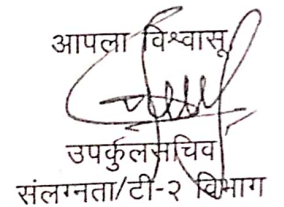 आपला विश्वासू
उपकुलसचिव
संलग्नता/टी-२ विभाग